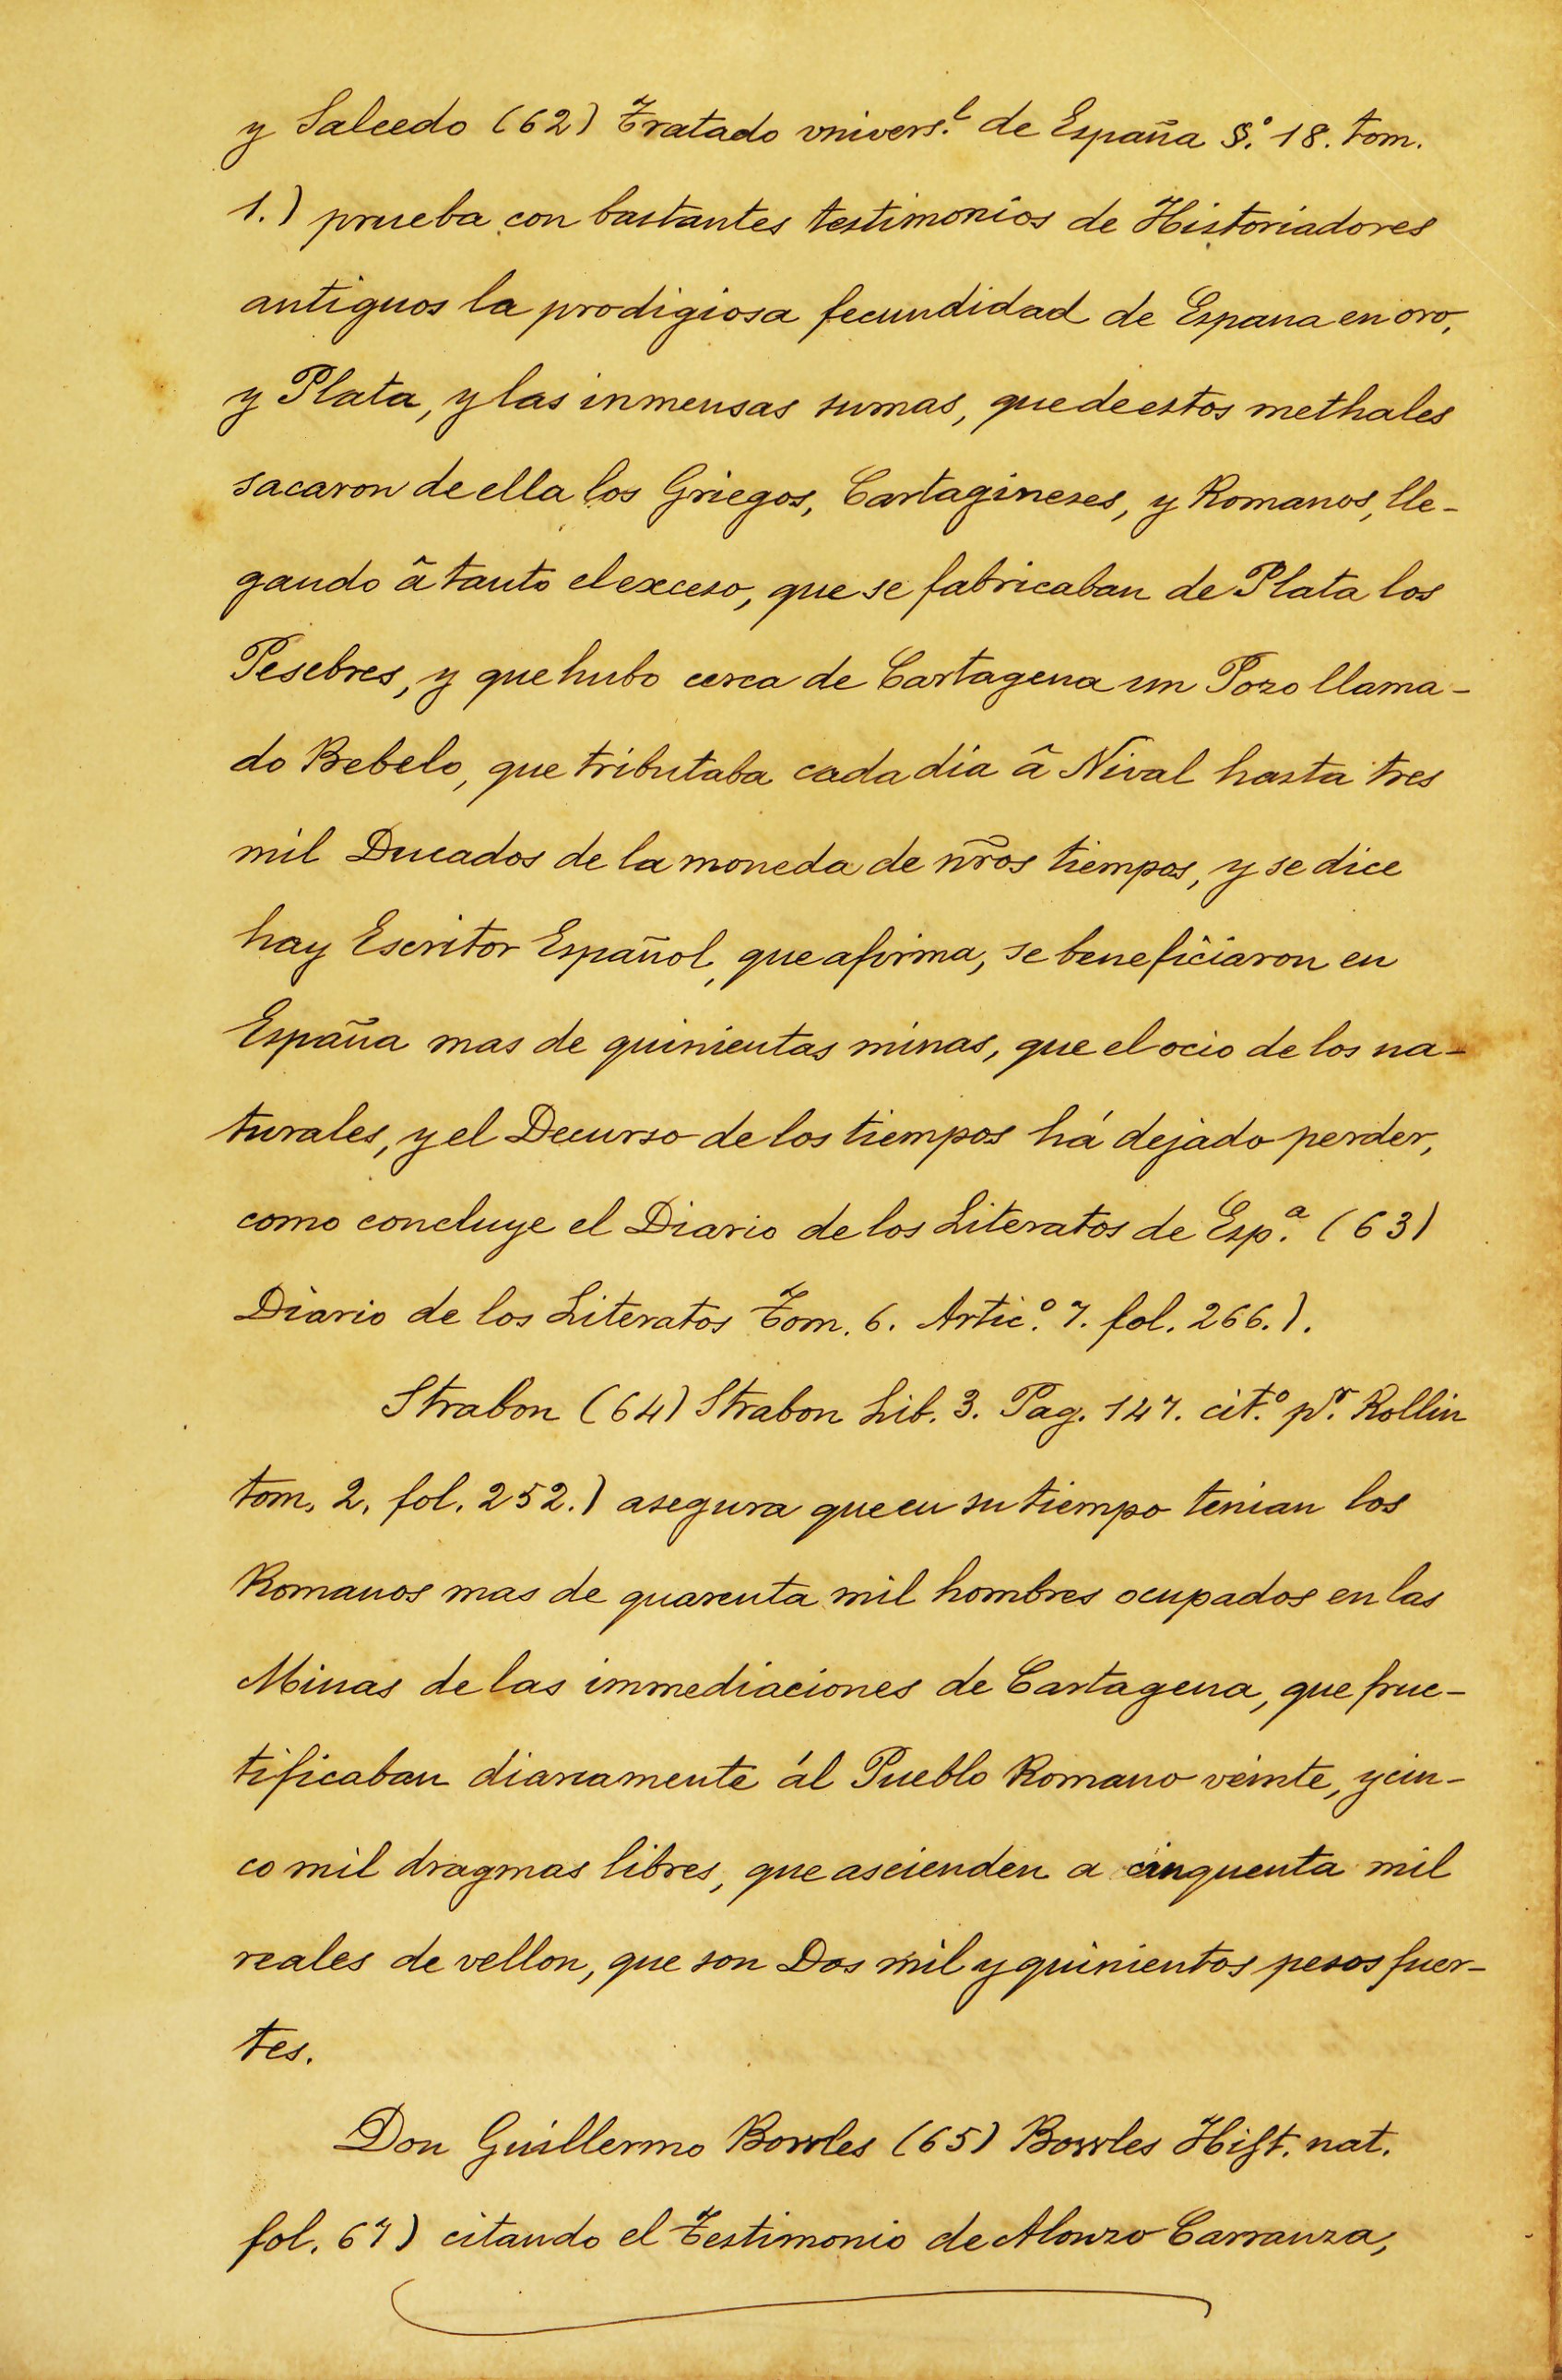 y Salcedo (62) Tratado vnivers.l de España §.º 18. tom.
1.) prueba con bastantes testimonios de Historiadores
antiguos la prodigiosa fecundidad de Espana en oro,
y Plata, y las inmensas sumas, que de estos methales
sacaron de ella los Griegos, Cartagineses, y Romanos, lle-
gando â tanto el exceso, que se fabricaban de Plata los
Pesebres, y que hubo cerca de Cartagena un Pozo llama-
do Bebelo, que tributaba cada dia â Nival hasta tres
mil Ducados de la moneda de nr̃os tiempos, y se dice
hay Escritor Español, que afirma, se beneficiaron en
España mas de quinientas minas, que el ocio de los na-
turales, y el Decurso de los tiempos há dejado perder,
como concluye el Diario de los Literatos de Esp.ª (63)
Diario de los Literatos Tom. 6. Artic.º 7. fol. 266.).
Strabon (64) Strabon Lib. 3. Pag. 147. cit.º p.r Rollin
tom. 2. fol. 252.) asegura que en su tiempo tenian los
Romanos mas de quarenta mil hombres ocupados en las
Minas de las immediaciones de Cartagena, que fruc-
tificaban diareamente ál Pueblo Romano veinte, y cin-
co mil dragmas libres, que ascienden a cinquenta mil
reales de vellon, que son Dos mil y quinientos pesos fuer-
tes.
Don Guillermo Bowles (65) Bowles Hist. nat.
fol. 67) citando el Testimonio de Alonzo Carranza,